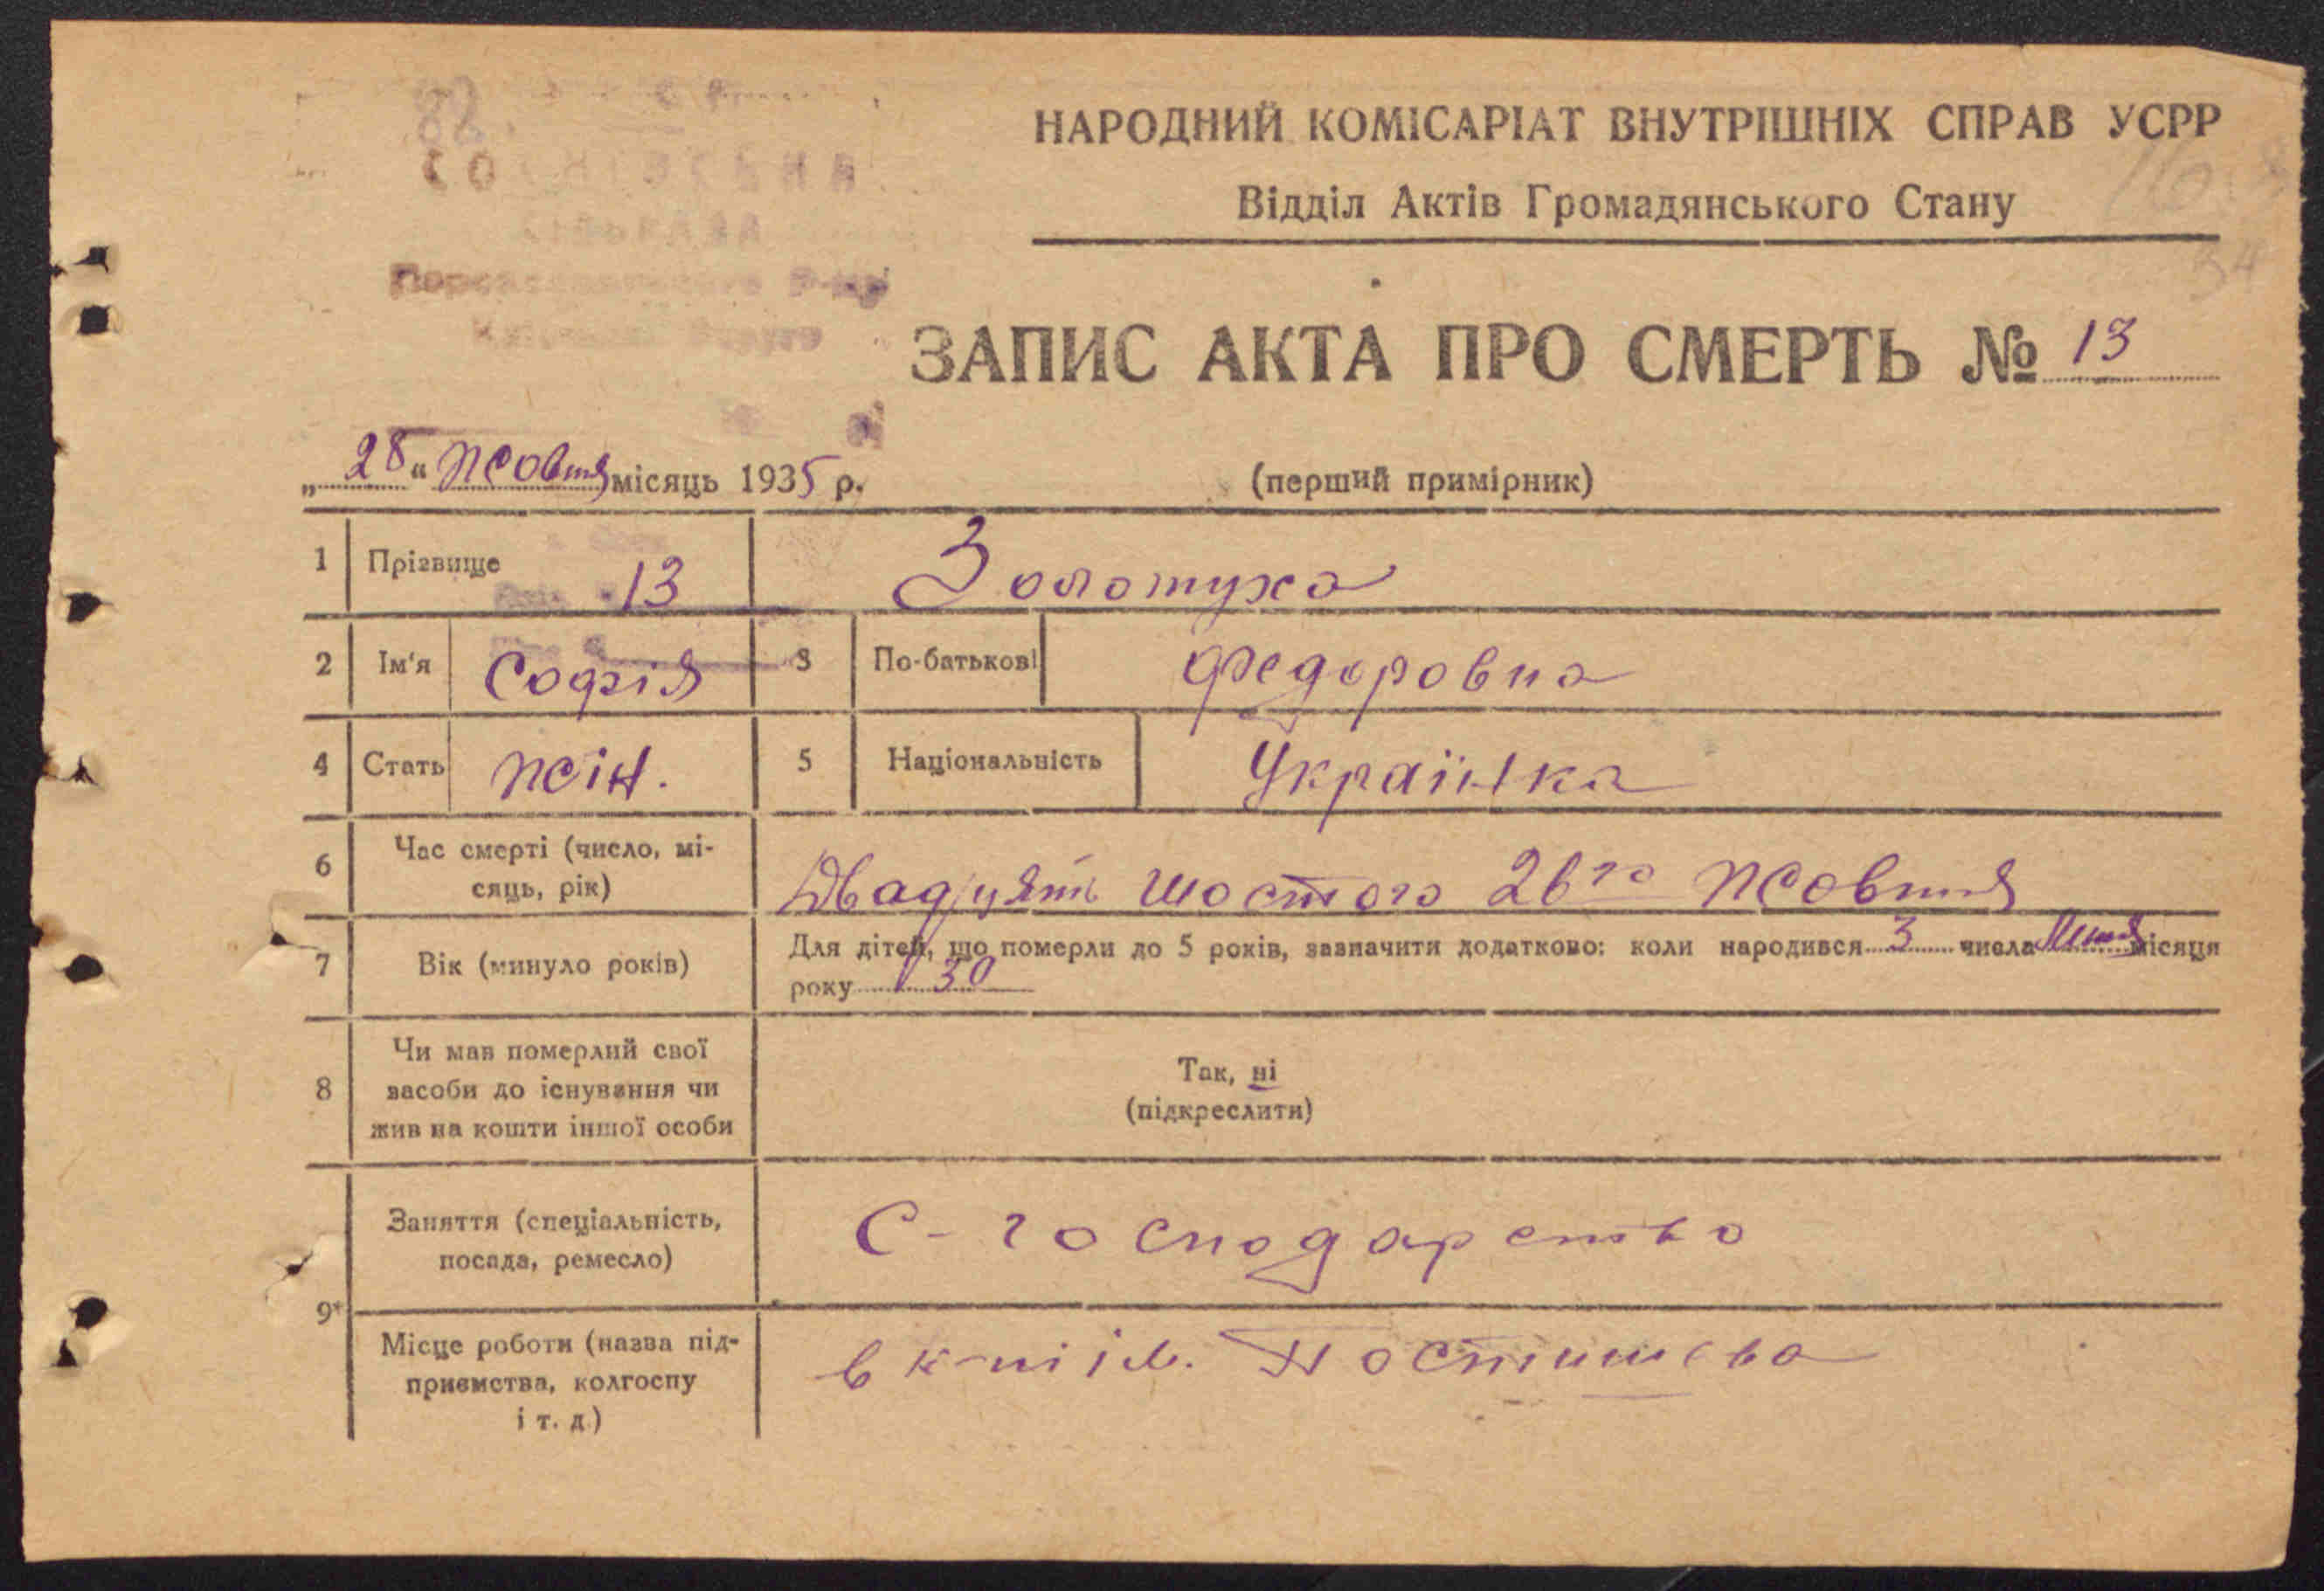 НАРОДНИЙ КОМІСАРІАТ ВНУТРІШНІХ СПРАВ УСРР
Відділ Актів Громадянського Стану
ЗАПИС АКТА ПРО СМЕРТЬ № 13
„28“ Жовтня місяць 1935 р.
(перший примірник)
1 Прізвище 13 Золотуха
2 Ім'я Софія 3 По-батькові Федоровна
4 Стать жін. 5 Національність Українка
6 Час смерті (число, мі-
сяць, рік)
Двадцять шостого 26го Жовтня
7 Вік (минуло років)
Для дітей, що померли до 5 років, зазначити додатково: коли народився 3 числа місяця
року 30
8 Чи мав померлий свої
засоби до існування чи
жив на кошти іншої особи
Так, ні
(підкреслити)
9* Заняття (спеціальність,
посада, ремесло)
С-господарство
Місце роботи (назва під-
приємства, колгоспу
і т. д.)
в к-пі ім. Постишева